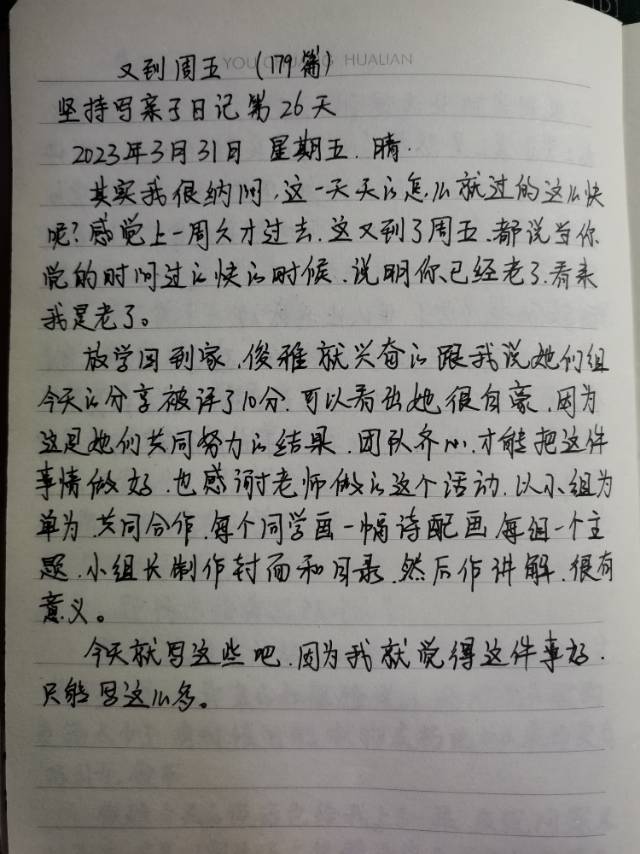 又到周五（179篇）
坚持写亲子日记第26天
2023年3月31日 星期五.晴.
其实我很纳闷,这一天天的怎么就过的这么快
呢?感觉上一周久才过去,这又到了周五、都说当你
觉的时间过的快的时候,说明你已经老了,看来
我是老了。
放学回到家,俊雅就兴奋的跟我说她们组
今天的分享被评了10分,可以看出她很自豪,因为
这是她们共同努力的结果,团队齐心,才能把这件
事情做好,也感谢老师做的这个活动,以小组为
单为,共同合作,每个同学画一幅诗配画,每组一个主
题,小组长制作封面和目录,然后作讲解,很有
意义。
今天就写这些吧,因为我就觉得这件事好.
只能写这么多。